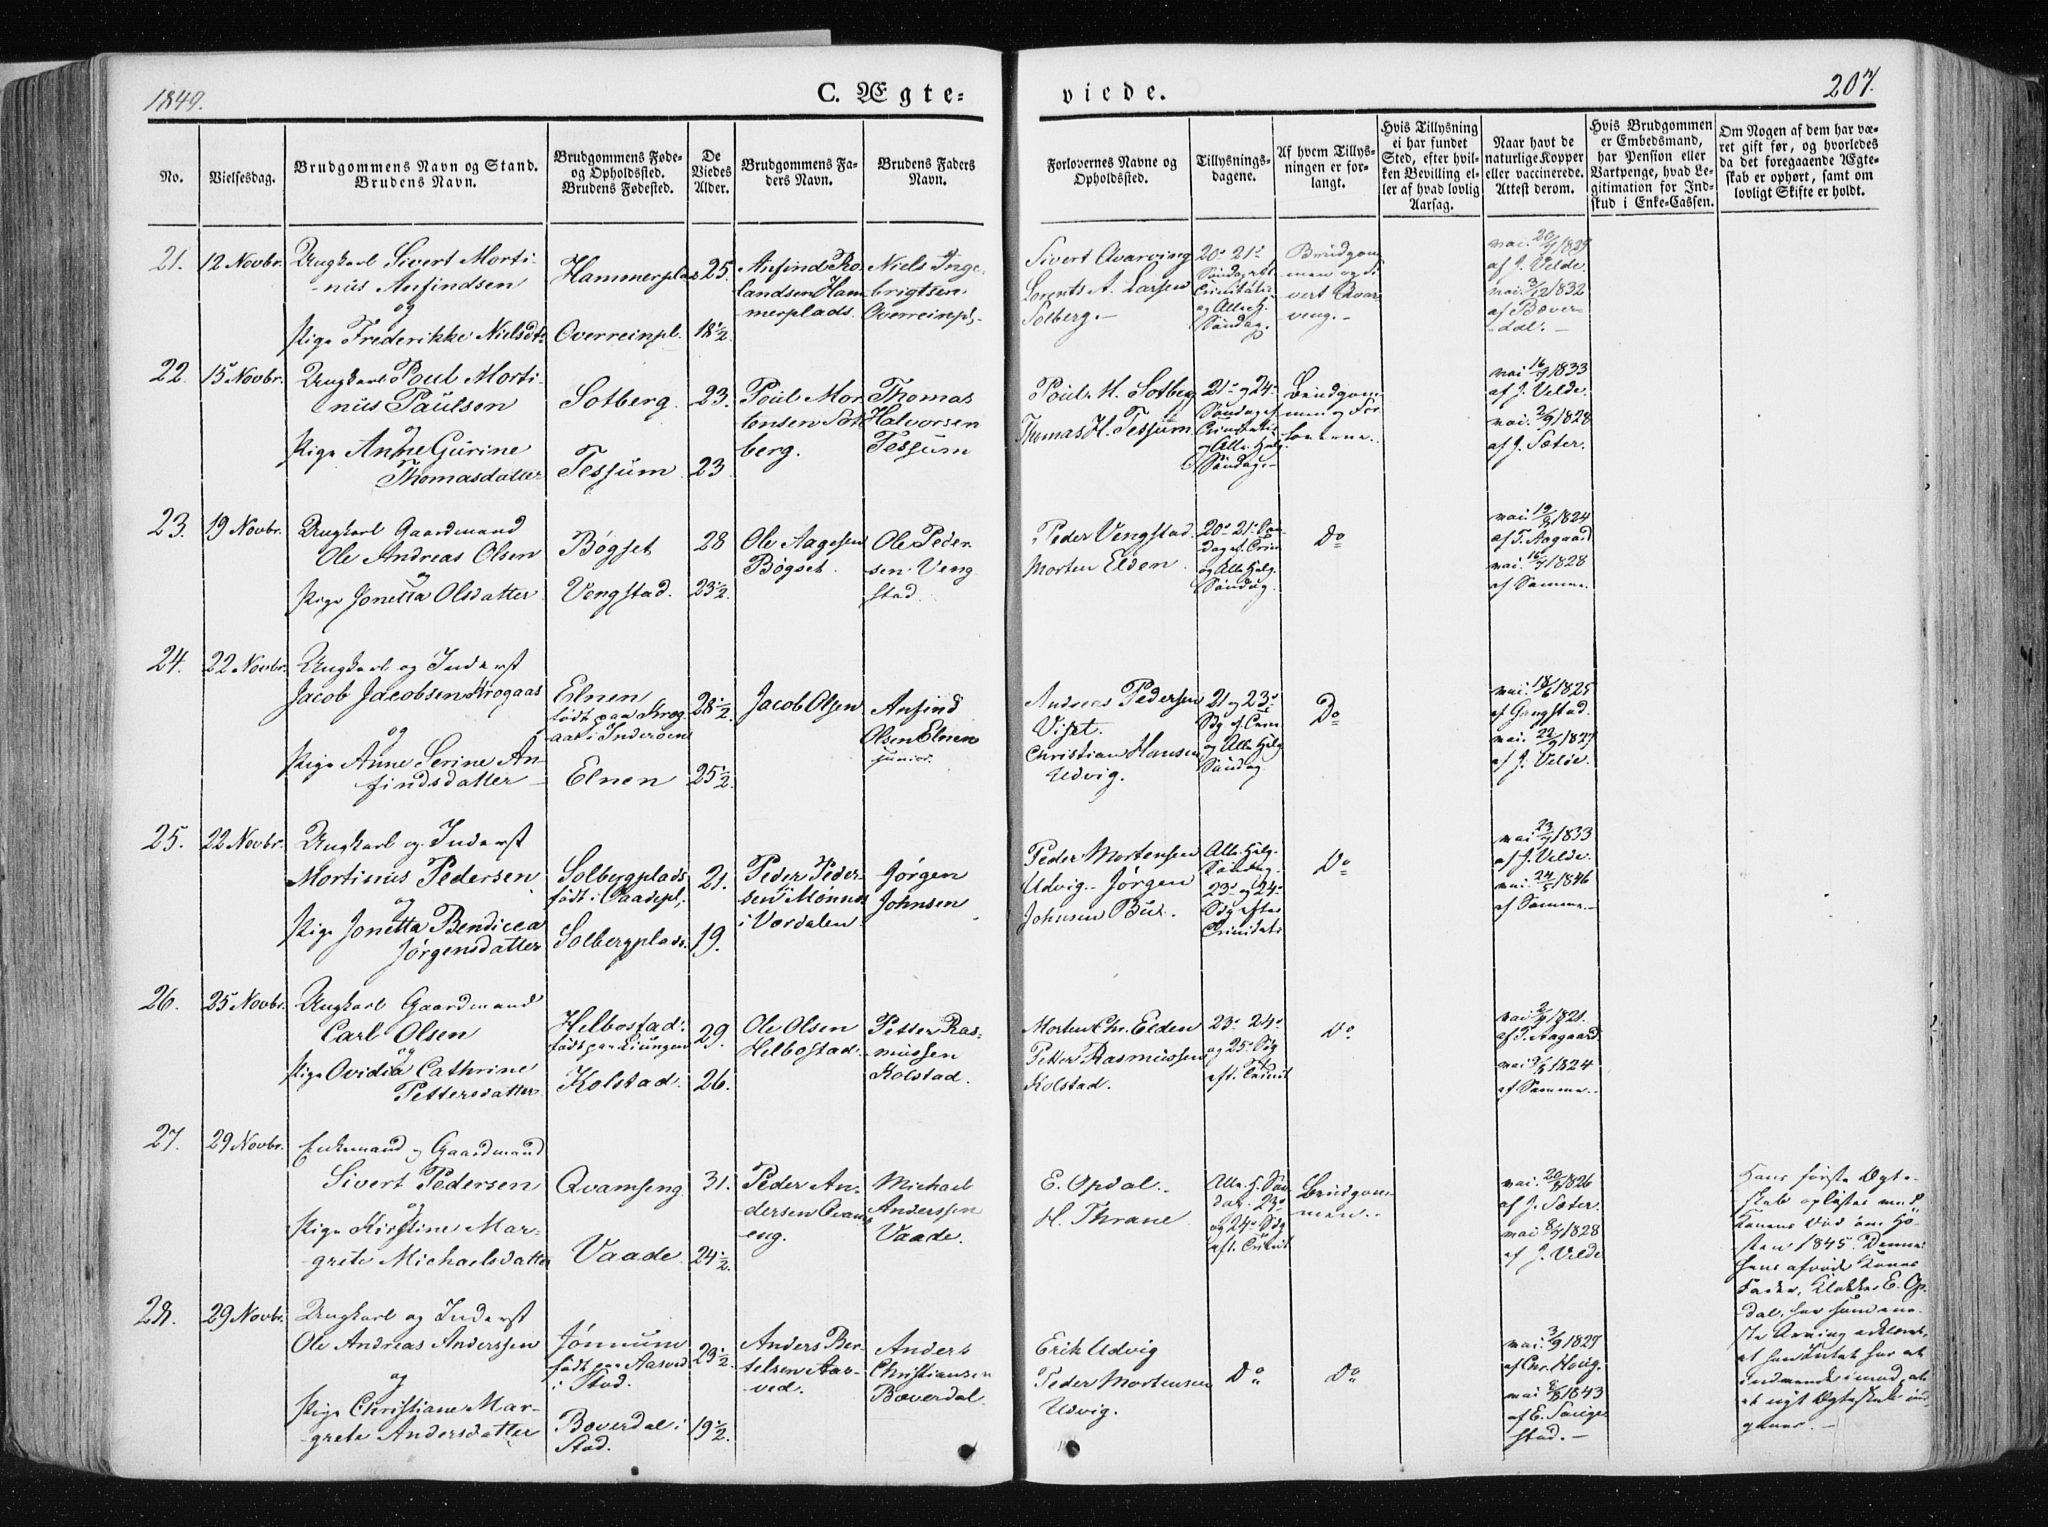 1849.
C. Ægte-
viede.
207.
No.
Vielsesdag.
Brudgommens Navn og Stand.
Brudens Navn.
Brudgommens Føde-
og Opholdssted.
Brudens Fødested.
De
Viedes
Alder.
Brudgommens Fa-
ders Navn.
Brudens Faders
Navn.
Forlovernes Navne og
Opholdssted.
Tillysnings-
dagene.
Af hvem Tillys-
ningen er for-
langt.
Hvis Tillysning
ei har fundet
Sted, efter hvil-
ken Bevilling el-
ler af hvad lovlig
Aarsag.
Naar havt de
naturlige Kopper
eller vaccinerede.
Attest derom.
Hvis Brudgommen
er Embedsmand,
har Pension eller
Vartpenge, hvad Le-
gitimation for Ind-
skud i Enke-Cassen.
Om Nogen af dem har væ-
ret gift før, og hvorledes
da det foregaaende Ægte-
skab er ophørt, samt om
lovligt Skifte er holdt.
21.
12 Novbr.
Ungkarl Sivert Morti-
nus Anfindsen
og
Pige Frederikke Nielsdtr
Hammerplads
Overreinpl.
25.
18 1/2
Anfind Ro-
landsen Ham-
merplads.
Niels Inge-
brigtsen
Overreinpl.
Sivert Qvarving
Lorents A. Larsen
Solberg.
20de 21de
Søndag eft.
Trinitatis
og Alle H.
Søndag.
Brudgom-
men og Si-
vert Qvar-
veng.
vac. 20/9 1829
af J. Velde.
vac. 3/12 1832
af Bæver-
dal.
22.
15 Novbr.
Ungkarl Poul Morti-
nus Paulsen
og
Pige Anne Gurine
Thomasdatter
Sotberg.
Tessum
23.
23
Poul Mor-
tensen Sot-
berg.
Thomas
Halvorsen
Tessum
Poul M. Sotberg
Thomas H. Tessum.
21de og 24de
Søndag ef.
Trinitatis
og Alle Helg.
Søndag.
Brudgom-
men og For-
loverne.
vac. 16/9 1833
af J. Velde.
vac. 2/9 1828
af J. Sæter.
23.
19 Novbr.
Ungkarl Gaardmand
Ole Andreas Olsen
og
Pige Jonetta Olsdatter
Bøgset
Vengstad.
28
23 1/2
Ole Aagesen
Bøgset.
Ole Peder-
sen Veng-
stad.
Peder Vengstad.
Morten Elden.
20de 21de Søn-
dag ef. Trin.
og Alle Helg.
Søndag.
Do
vac. 19/9 1824
af T. Aagaard
vac. 16/9 1828
af Samme.
24.
22 Novbr.
Ungkarl og Inderst
Jacob Jacobsen Krogaas
og
Pige Anne Serine An-
findsdatter
Elnen
født paa Krog-
aas i Inderøen
Elnen
28 1/2
25 1/2
Jacob Olsen
Anfind
Olsen Elnen
junior.
Andreas Pedersen
Viset.
Christian Hansen
Udvig.
21 og 23de
Sdg ef. Trin.
og Alle Helg
Søndag
Do
vac. 18/6 1825
af Gangstad.
vac. 22/9 1827
af J. Velde.
25.
22 Novbr.
Ungkarl og Inderst
Mortinus Pedersen
og
Pige Jonetta Bendicea
Jørgensdatter
Solbergplads
født i Vaadepl.
Solbergplads.
21.
19.
Peder Peder-
sen Mønnes
i Værdalen.
Jørgen
Johnsen
Peder Mortensen
Udvig. Jørgen
Johnsen Bur.
Alle Helg.
Søndag.
23de og 24de
Sdg efter
Trinitati
Do
vac. 23/7 1833
af J. Velde.
vac. 24/5 1846
af Samme.
26.
25 Novbr.
Ungkarl Gaardmand
Carl Olsen
og
Pige Ovidia Cathrine
Pettersdatter
Helbostad.
født paa Liungen
Kolstad.
29.
26.
Ole Olsen
Helbostad.
Petter Ras-
mussen
Kolstad.
Morten Chr. Elden
Petter Rasmussen
Kolstad.
23de 24de
og 25de Sdg
eft. Trinit
Do
vac. 1821.
af T. Aagaard.
vac. 1824
af Samme.
27.
29 Novbr.
Enkemand og Gaardmand
Sivert Pedersen
og
Pige Kirstine Mar-
grete Michaelsdatter
Qvamseng.
Vaade.
31.
24 1/2
Peder An-
dersen Qvams-
eng.
Michael
Anderssen
Vaade.
E. Opdal.
H. Thrane.
Alle H. Søn-
dag. 23de
og 24de Sdg
eft. Trinit
Brudgom-
men.
vac. 20/7 1826
af J. Sæter.
vac. 8/9 1828
af J. Velde
Hans første Ægte-
skab opløstes ved
Konens Død om Hø-
sten 1845. Denne
hans afdøde Kones
Fader, Klokker E. Op-
dal, har som ene-
ste Arving erklæret,
at han Intet har at
indvende imod, at
et nyt Ægteskab ind-
gaaes.
28.
29 Novbr.
Ungkarl og Inderst
Ole Andreas Anderssen
og
Pige Christiane Mar-
grete Andersdatter
Jønnum
født paa Aasved
i Stod.
Bæverdal i
Stod.
23 1/2
19 1/2
Anders Ber-
telsen Aas-
ved.
Anders
Christiansen
Bæverdal.
Erik Udvig
Peder Mortensen
Udvig.
Do
Do
vac. 3/9 1827
af Chr. Hovig.
vac. 1843
af E.
stad.